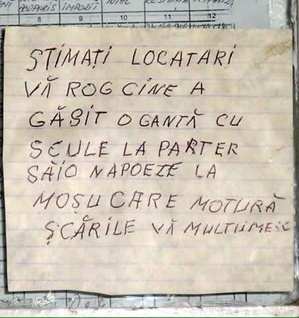 9 10 11 12
STIMAȚI LOCATARI
VĂ ROG CINE A
GĂSIT O GANTĂ CU
SCULE LA PARTER
SĂIO NAPOEZE LA
MOȘU CARE MOTURĂ
ȘCĂRILE VĂ MULTUMESC